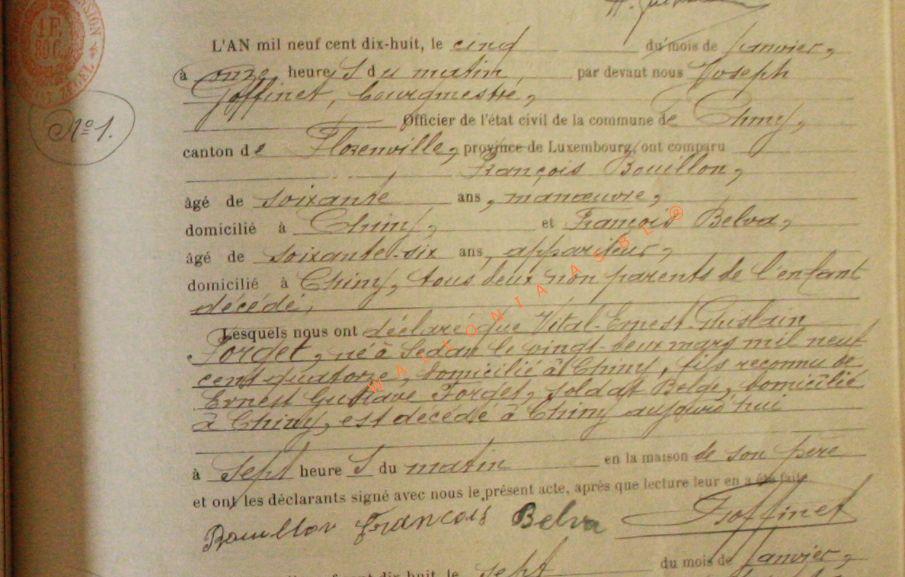 L'AN mil neuf cent dix-huit, le cinq du mois de janvier,
à onze heures du matin, par devant nous Joseph
Goffinet, Bourgmestre,
N° 1.
Officier de l'état civil de la commune de Chiny,
canton de Florenville, province de Luxembourg, ont comparu
François Bouillon,
âgé de soixante ans, manœuvre,
domicilié à Chiny, et François Belva,
âgé de soixante-six ans, appariteur,
domicilié à Chiny, tous deux non parents de l'enfant
décédé,
Lesquels nous ont déclaré que Vital-Ernest-Ghislain
Forget, né à Sedan le vingt-deux mars mil neuf
cent quatorze, domicilié à Chiny, fils reconnu de
Ernest Gustave Forget, soldat Belge, domicilié
à Chiny, est décédé à Chiny aujourd'hui
à sept heures du matin en la maison de son père
et ont les déclarants signé avec nous le présent acte, après que lecture leur en a été faite
Bouillon François Belva Goffinet
dix-huit, le sept du mois de janvier,
WALLONIA ASBL ©